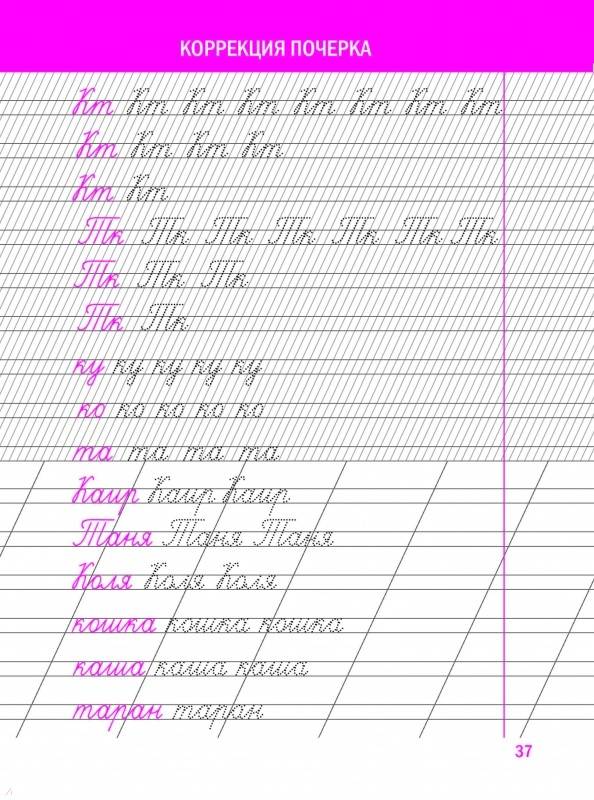 КОРРЕКЦИЯ ПОЧЕРКА
Кт Кт Кт Кт Кт Кт Кт Кт
Кт Кт Кт Кт
Кт Кт
Тк Тк Тк Тк Тк Тк Тк
Тк Тк Тк
Тк Тк
ку ку ку ку ку
ко ко ко ко ко
та та та та та
Каир Каир Каир
Таня Таня Таня
Коля Коля Коля
кошка кошка кошка
каша каша каша
таран таран
37